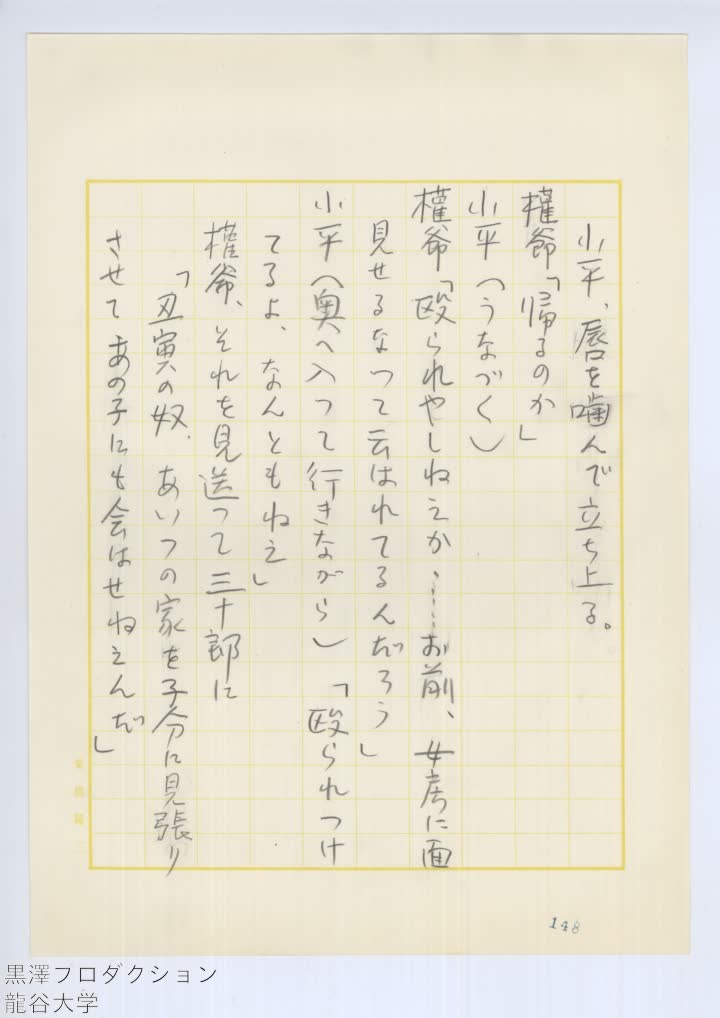 小平、唇を噛んで立ち上る。
権爺「帰るのか」
小平（うなづく）
権爺「殴られやしねえか……お前、女房に面
見せるなつて云はれてるんだろう」
小平（奥へ入つて行きながら）「殴られつけ
てるよ、なんともねえ」
権爺、それを見送つて三十郎に
「丑寅の奴、あいつの家を子分に見張り
させてあの子にも会はせねえんだ」
148
黒澤プロダクション
龍谷大学